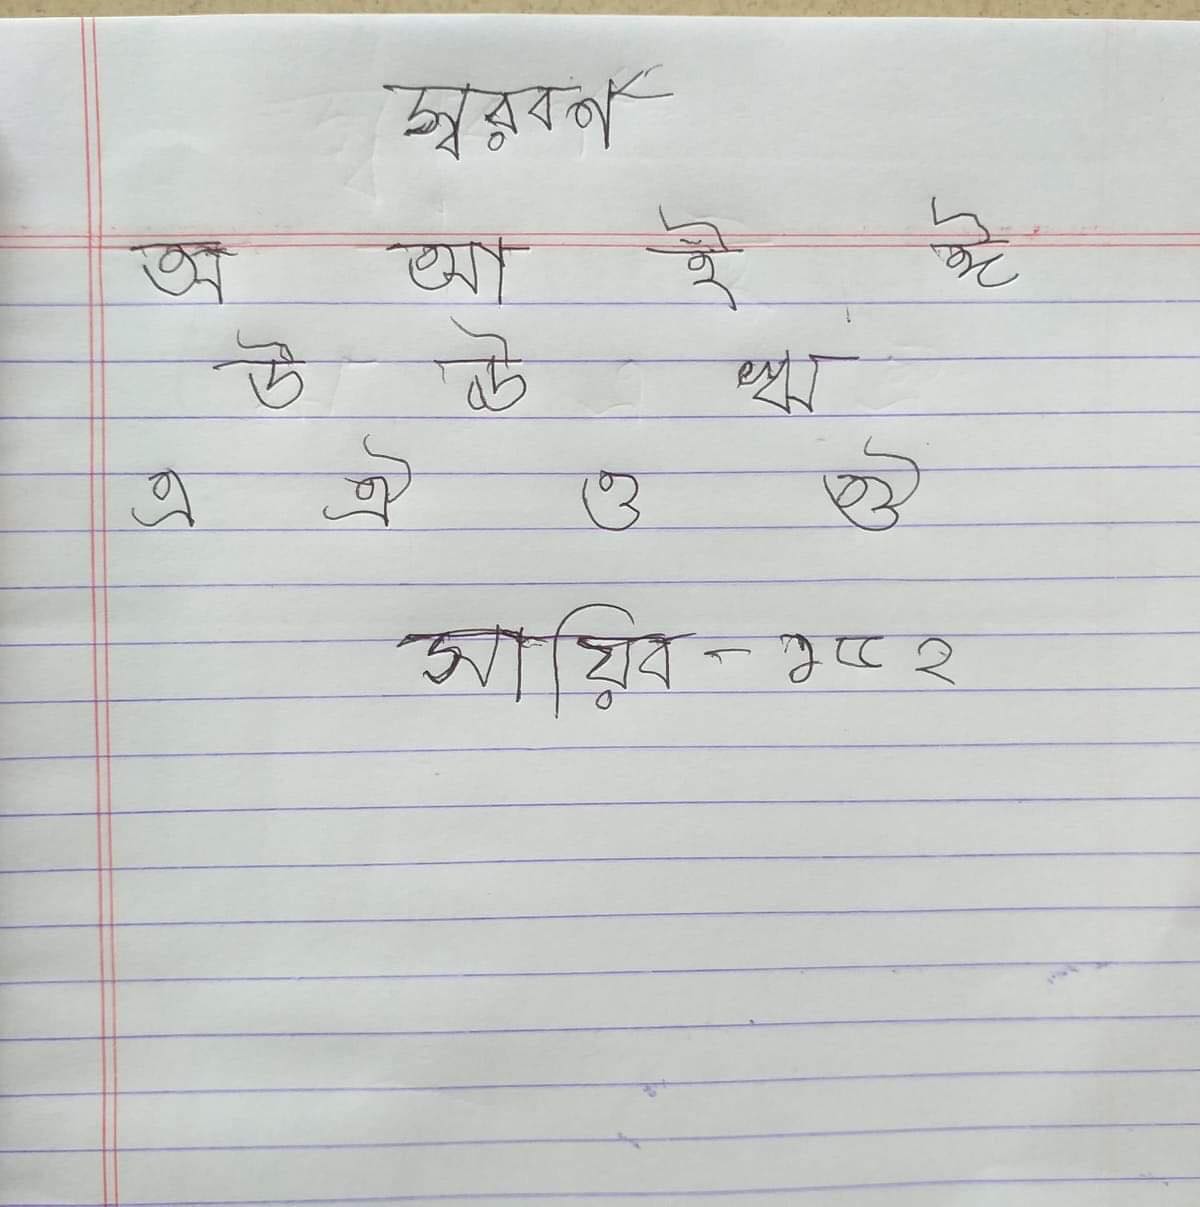 স্বরবর্ণ
অ আ ই ঈ
উ ঊ ঋ
এ ঐ ও ঔ
সায়িব -